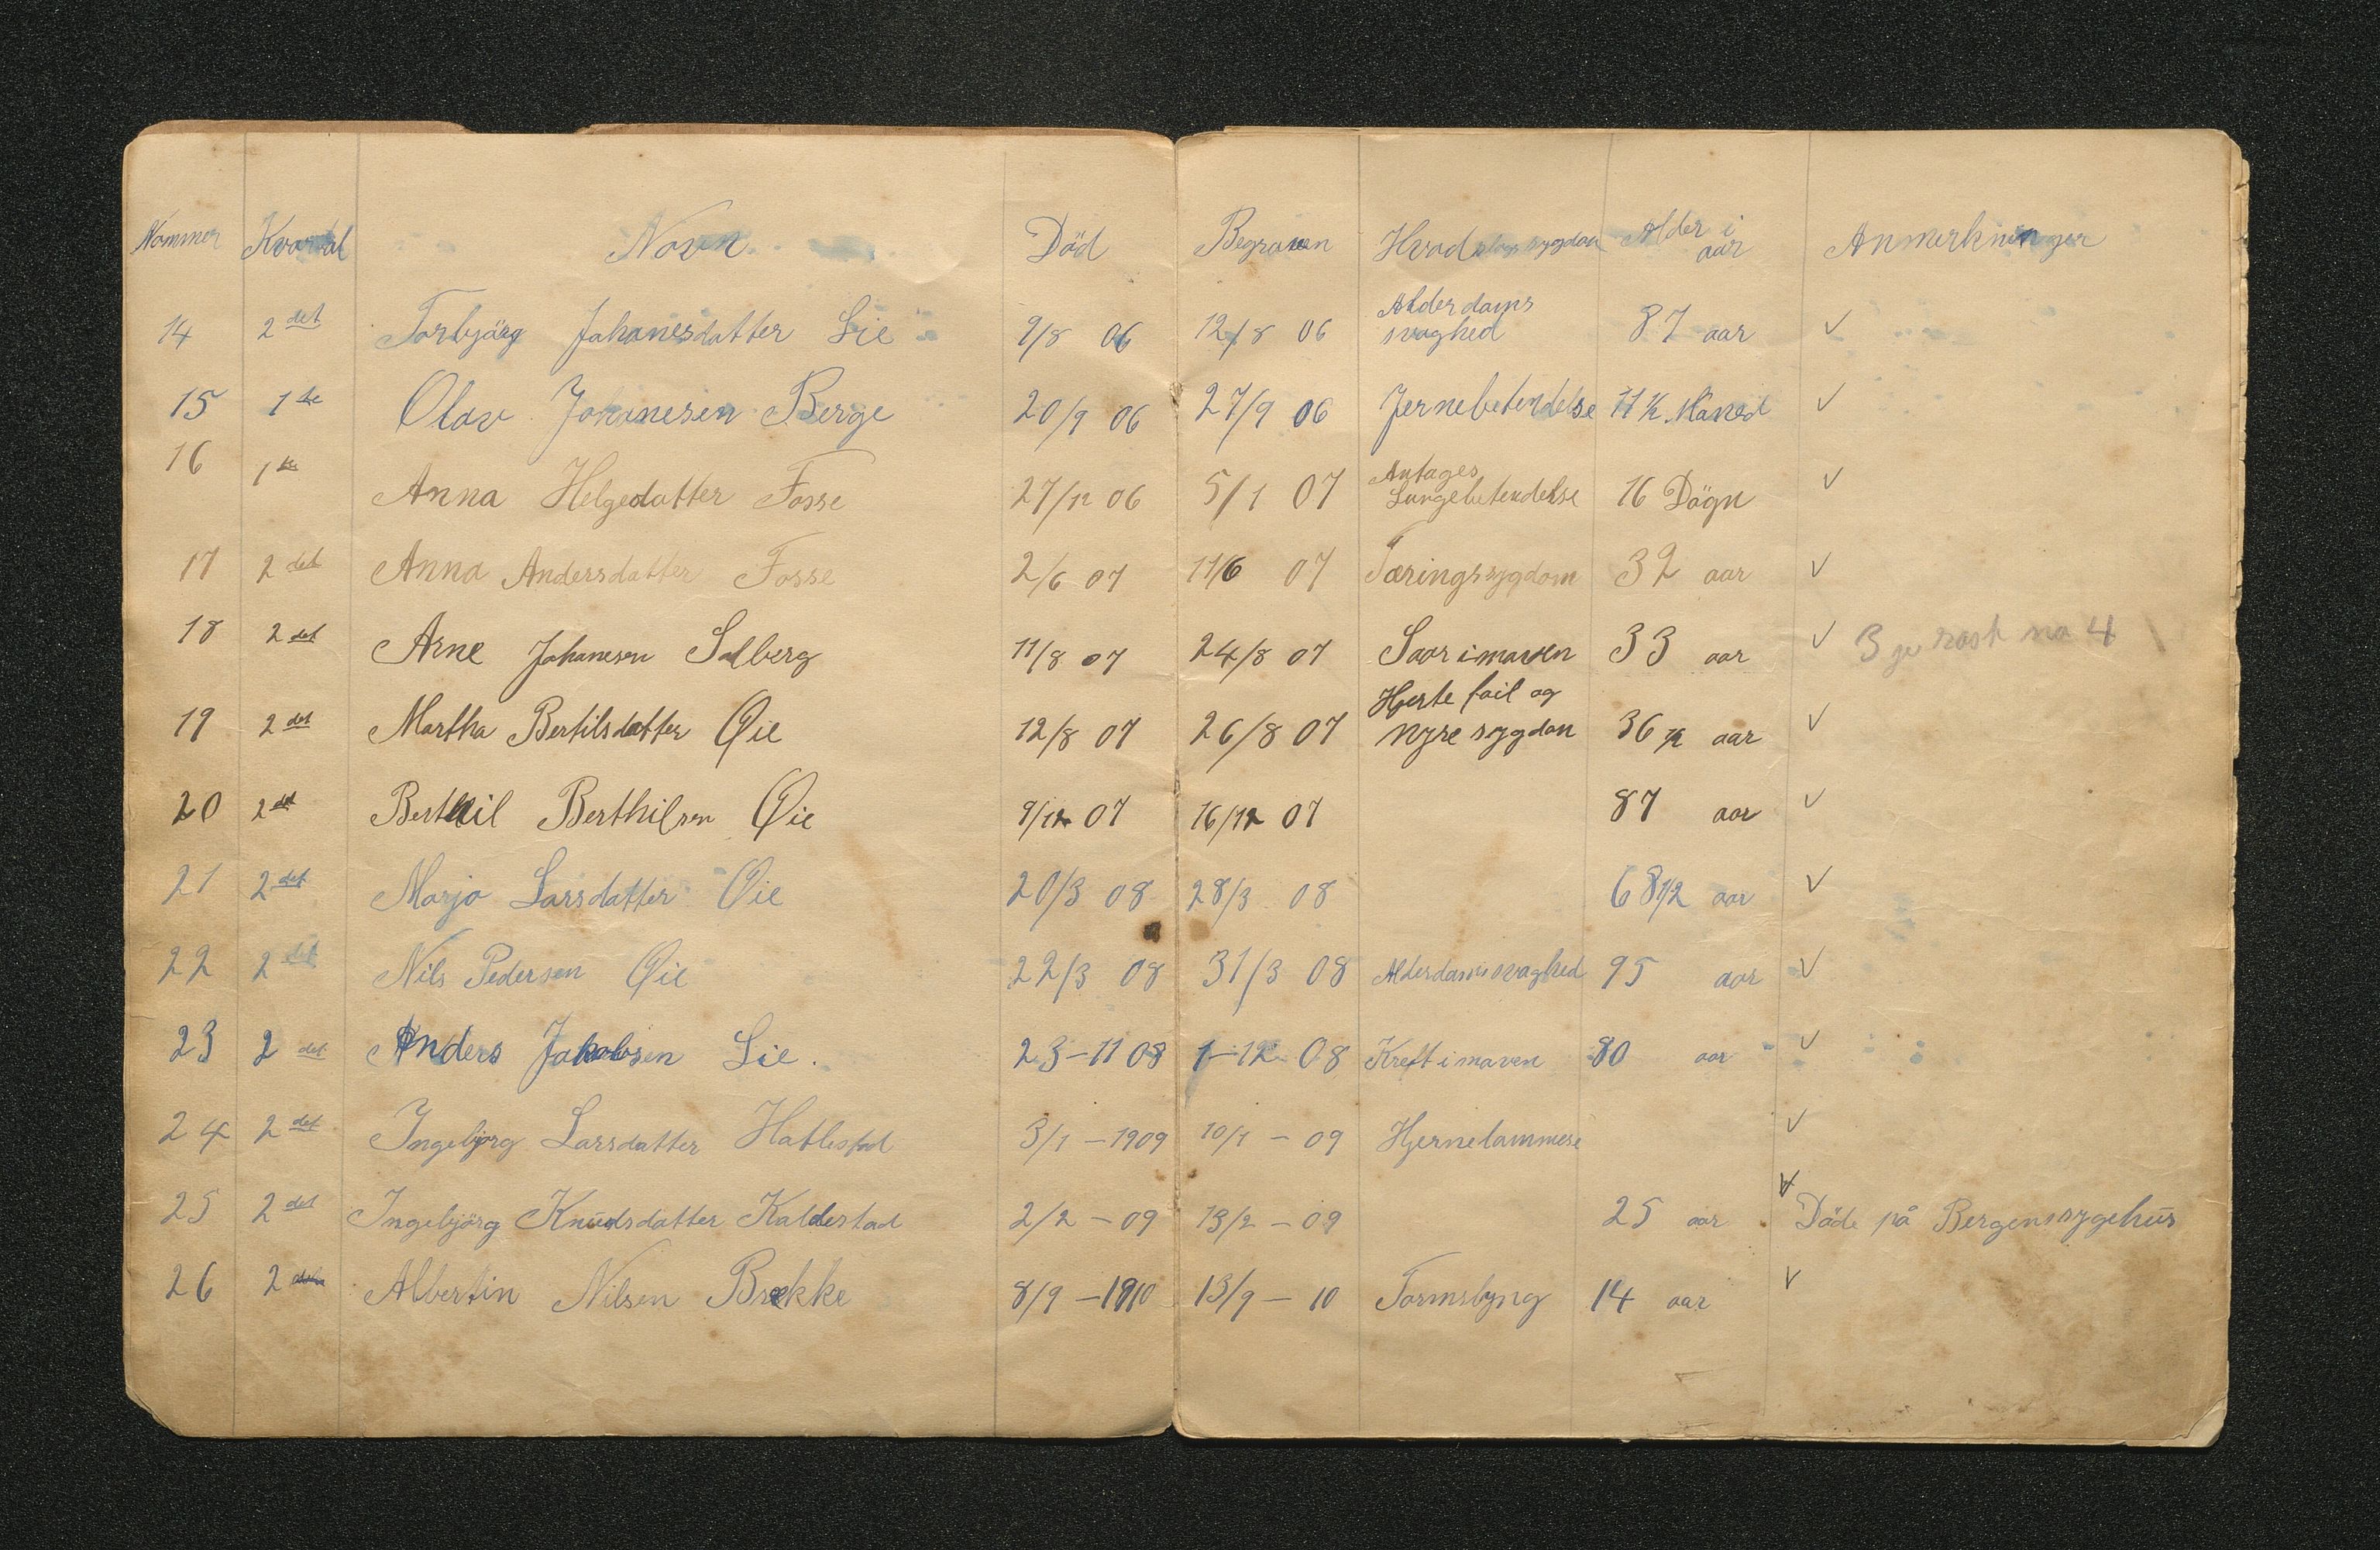 Nommer Kvartal Navn Död Begraven Hvad slags sygdom Alder i aar Anmerkninger
14 2det Torbjörg Johanesdatter Lie 9/8 06 12/8 06 Alderdams svaghed 87 aar ✓
15 1te Olav Johanesen Berge 20/9 06 27/9 06 Jernebetendelse 11 ½ Maaned ✓
16 1te Anna Helgedatter Fosse 27/12 06 5/1 07 Antages Lungebetendelse 16 Dögn ✓
17 2det Anna Andersdatter Fosse 2/6 07 11/6 07 Tæringssygdom 32 aar ✓
18 2det Arne Johanesen Solberg 11/8 07 24/8 07 Saar i maven 33 aar ✓ 3 no 4
19 2det Martha Bertilsdatter Øie 12/8 07 26/8 07 Hjerte feil og nyre sygdom 36 ½ aar ✓
20 2det Berthil Berthilsen Øie 9/12 07 16/12 07 87 aar ✓
21 2det Marja Larsdatter Øie 20/3 08 28/3 08 68 1/2 aar ✓
22 2det Nils Pedersen Øie 22/3 08 31/3 08 Alderdamsvaghed 95 aar ✓
23 2det Anders Jakobsen Lie. 23-11 08 1-12 08 Kreft i maven 80 aar ✓
24 2det Ingebjørg Larsdatter Hatlestad 3/1 - 1909 10/1 - 09 Hjernelammese ✓
25 2det Ingebjörg Knudsdatter Kaldestad 2/2 - 09 13/2 - 09 25 aar ✓ Döde på Bergensygehus
26 2det Albertin Nilsen Brekke 8/9 - 1910 13/9 - 10 Tarmslyng 14 aar ✓